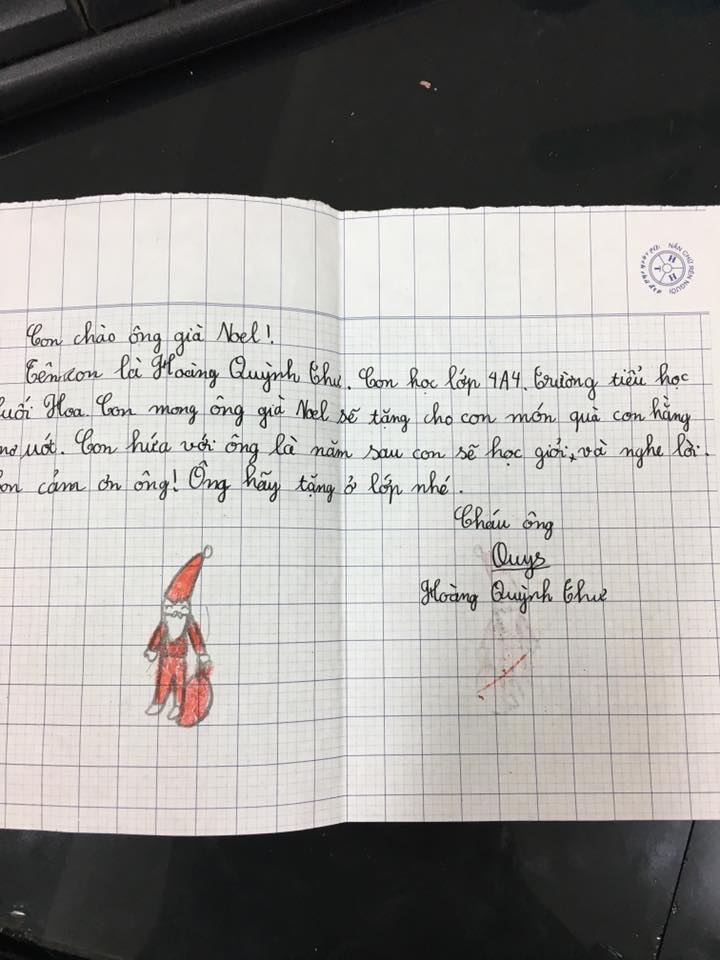 NẮN CHỮ RÈN NGƯỜI
H
T H
Con chào ông già Noel!
Tên con là Hoàng Quỳnh Thư. Con học lớp 4A4. Trường tiểu học
Hoa. Con mong ông già Noel sẽ tặng cho con món quà con hằng
ước. Con hứa với ông là năm sau con sẽ học giỏi, và nghe lời.
cảm ơn ông! Ông hãy tặng ở lớp nhé.
Cháu ông
Quys
Hoàng Quỳnh Thư